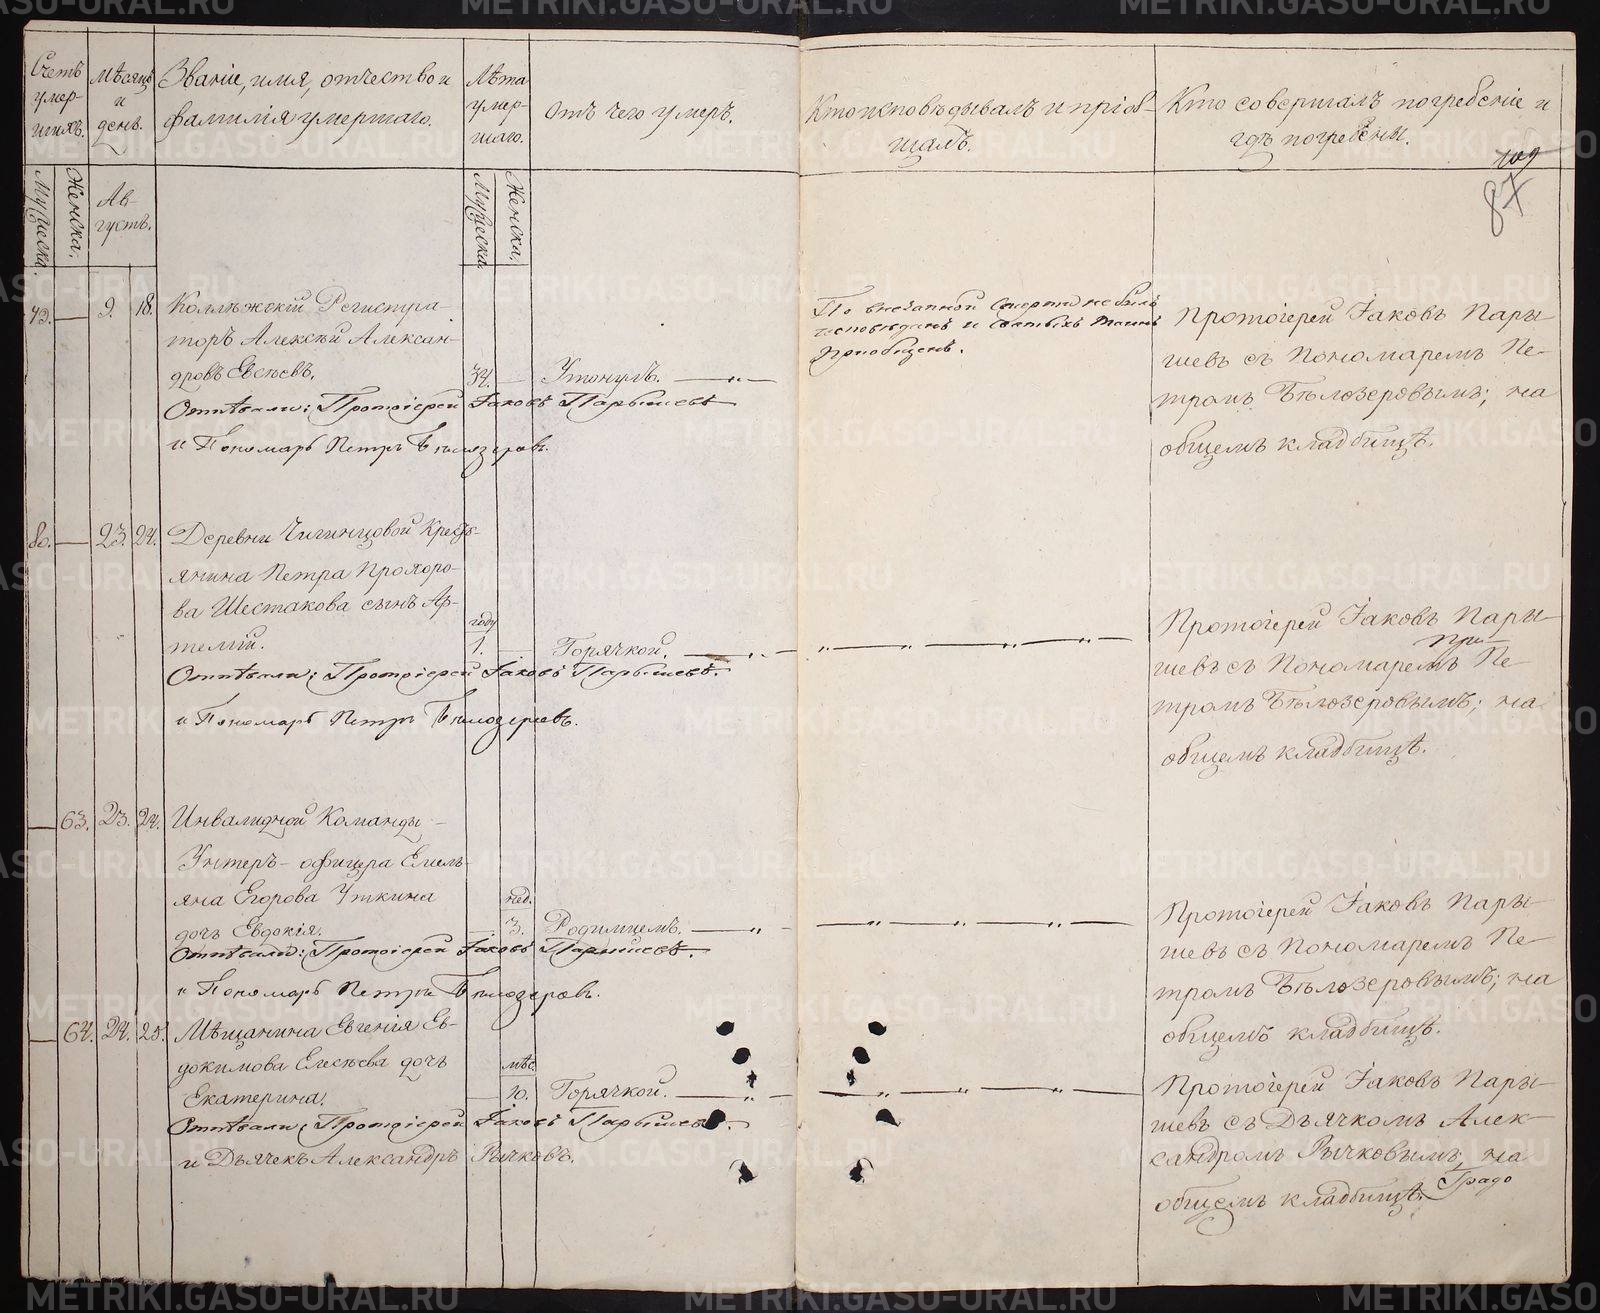 Счетъ умер-шихъ.
Мѣсяцъ и день.
Званіе, имя, отчество и фамилія умершаго.
Лѣта умер-шаго.
Отъ чего умеръ.
Кто исповѣдывалъ и пріоб-щалъ.
Кто совершалъ погребеніе и гдѣ погребены.
109
87
Мужеска.
Женска.
Ав-густъ.
Мужеска
Женска.
79. — 9. 18. Коллѣжскій Регистра-
торъ Алексѣй Алексан-
дровъ Евсѣевъ. 34. — Утонулъ.
Отпѣвали: Протоіерей Іаковъ Парышевъ
и Пономарь Петръ Бѣлозеровъ.
По внезапной смерти не былъ
исповѣданъ и Святыхъ Таинъ
Приобщенъ.
Протоіерей Іаковъ Пары-
шевъ съ Пономаремъ Пе-
тромъ Бѣлозеровымъ; на
общемъ кладбищѣ.
80. — 23. 24. Деревни Чигинцовой Кресть-
янина Петра Прохоро-
ва Шестакова сынъ Ар-
темій. году 1. Горячкой.
Отпѣвали: Протоіерей Іаковъ Парышевъ.
и Пономарь Петръ Бѣлозеровъ.
Протоіерей Іаковъ Пары-
шевъ съ Пономаремъ Пе-
тромъ Бѣлозеровымъ; на
общемъ кладбищѣ.
— 63. 23. 24. Инвалидной Команды
Унтеръ-офицера Емель-
яна Егорова Уткина
дочь Евдокія. нед. 3. Родимцемъ.
Отпѣвали: Протоіерей Іаковъ Парышевъ.
и Пономарь Петръ Бѣлозеровъ.
Протоіерей Іаковъ Пары-
шевъ съ Пономаремъ Пе-
тромъ Бѣлозеровымъ; на
общемъ кладбищѣ.
— 64. 24. 25. Мѣщанина Евгенія Ев-
докимова Елесѣева дочь
Екатерина. мѣс. 10. Горячкой.
Отпѣвали: Протоіерей Іаковъ Парышевъ.
и Дьячекъ Александръ Рычковъ.
Протоіерей Іаковъ Пары-
шевъ съ Дьячкомъ Алек-
сандромъ Рычковымъ, на
общемъ кладбищѣ.
Градо
METRIKI.GASO-URAL.RU